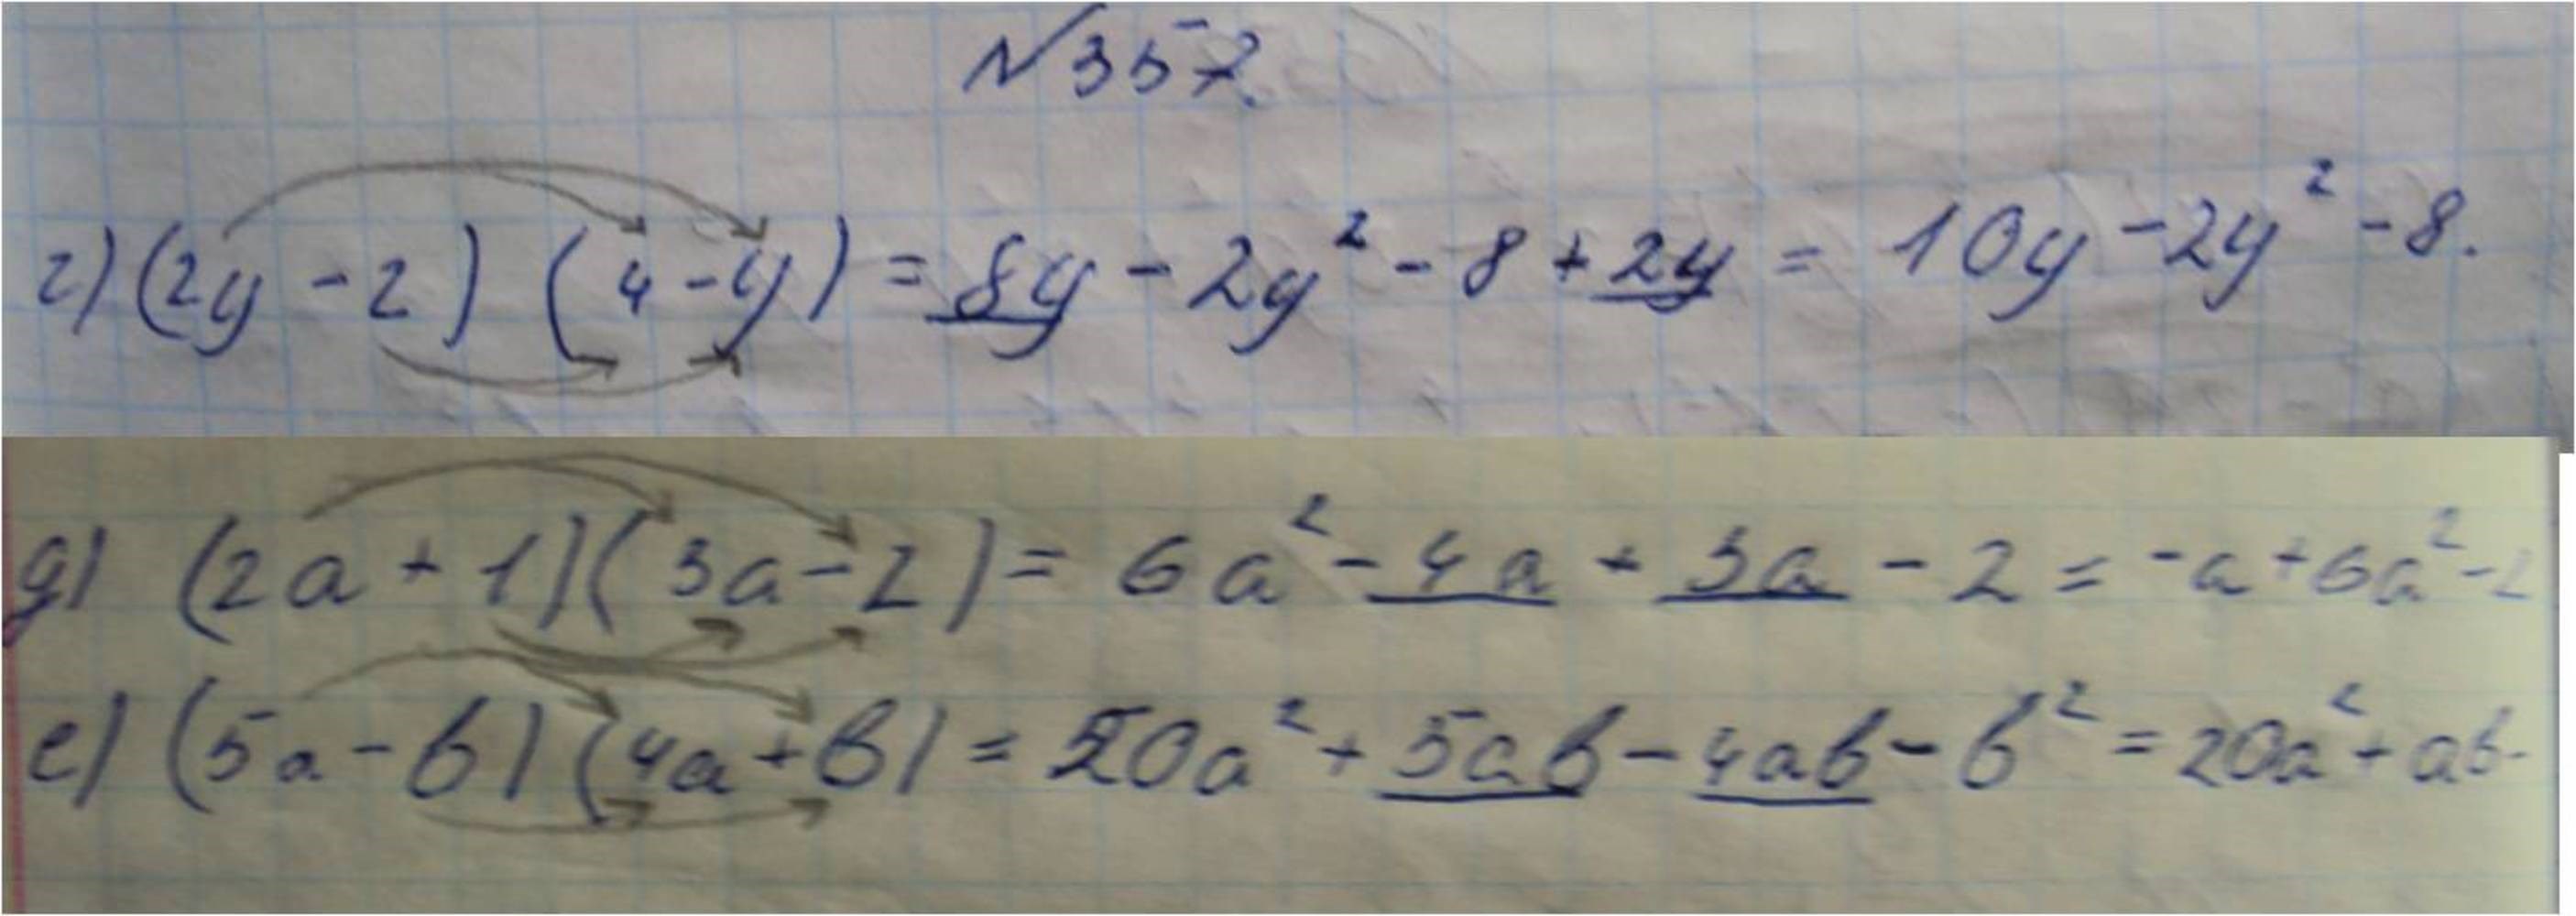 №357.
г) (2y - 2) (4 - y) = 8y - 2y² - 8 + 2y = 10y - 2y² - 8.
д) (2a + 1)(3a - 2) = 6a² - 4a + 3a - 2 = -a + 6a² - 2
е) (5a - b) (4a + b) = 20a² + 5ab - 4ab - b² = 20a² + ab -